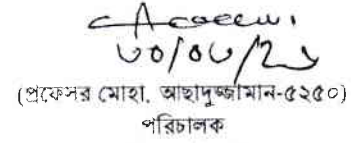 ৩০/০৬/২১
(প্রফেসর মোহা. আছাদুজ্জামান-৫২৫০)
পরিচালক